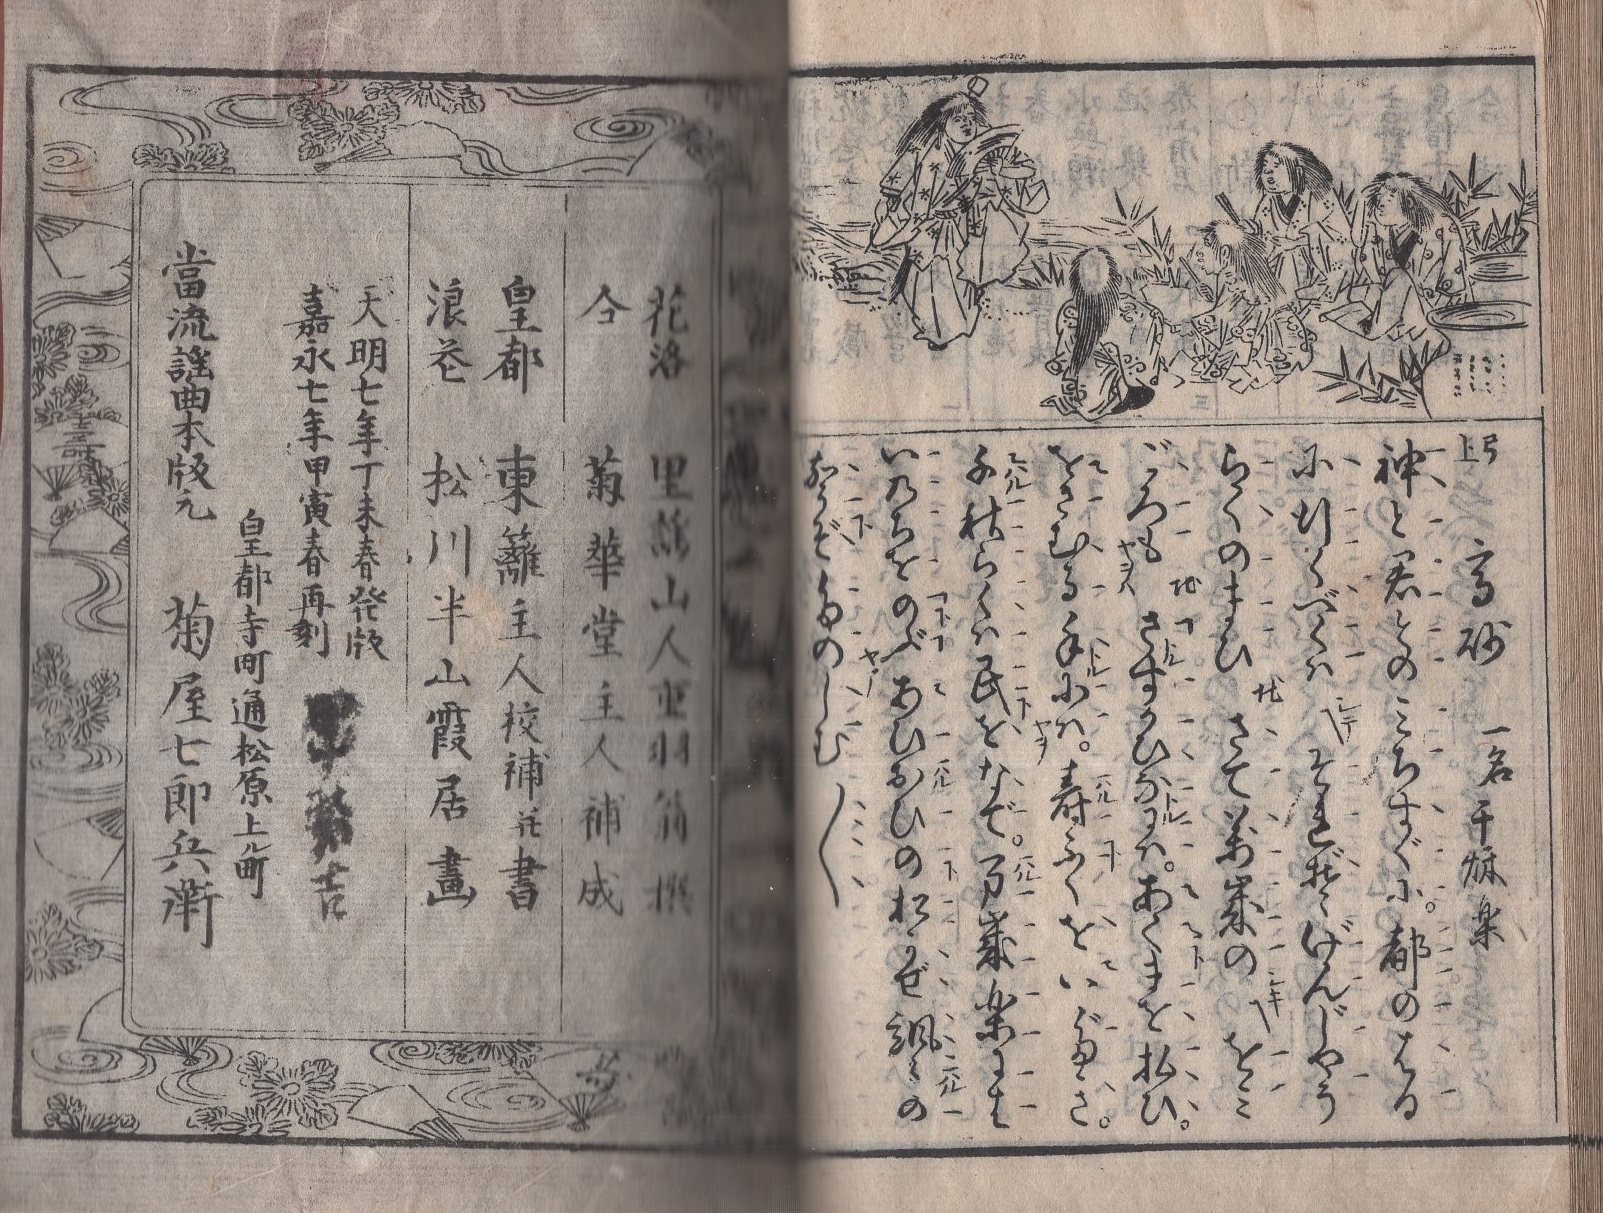 高砂 一名千秋楽
神と君とのみちすぐに。都のはる
に行くべくは シテ それぞげんじやう
らくのまひ 地 さて萬歳の をみ
ごろも 地 さすかひなには。あくまを払ひ。
をさむる手には。寿ふくをいだき。
千秋らくは民をなで。万歳楽には
いのちをのぶ あひおひの松かぜ 颯々の
声ぞたのしむ〱
花洛 里 山人 翁撰
仝 菊華堂主人補成
皇都 東籬主人校補并書
浪花 松川半山霞居畫
天明七年丁未春発版
嘉永七年甲寅春再刻
吉
皇都寺町通松原上ル町
當流謡曲本版元 菊屋七郎兵衛